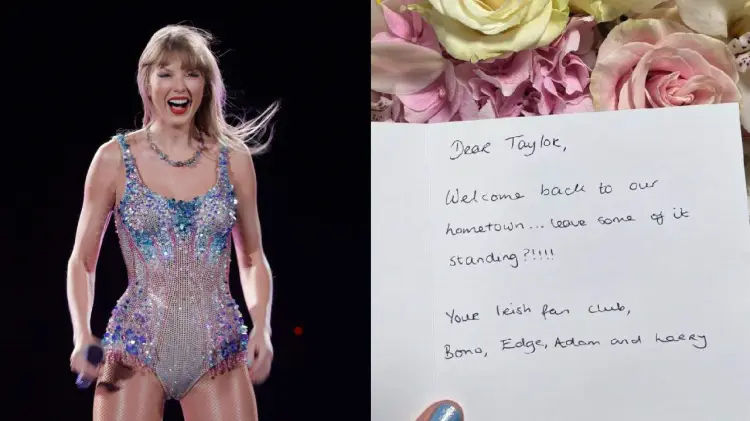 Dear Taylor,
Welcome back to our
hometown... leave some of it
standing?!!!!
Your Irish fan club,
Bono, Edge, Adam and Larry